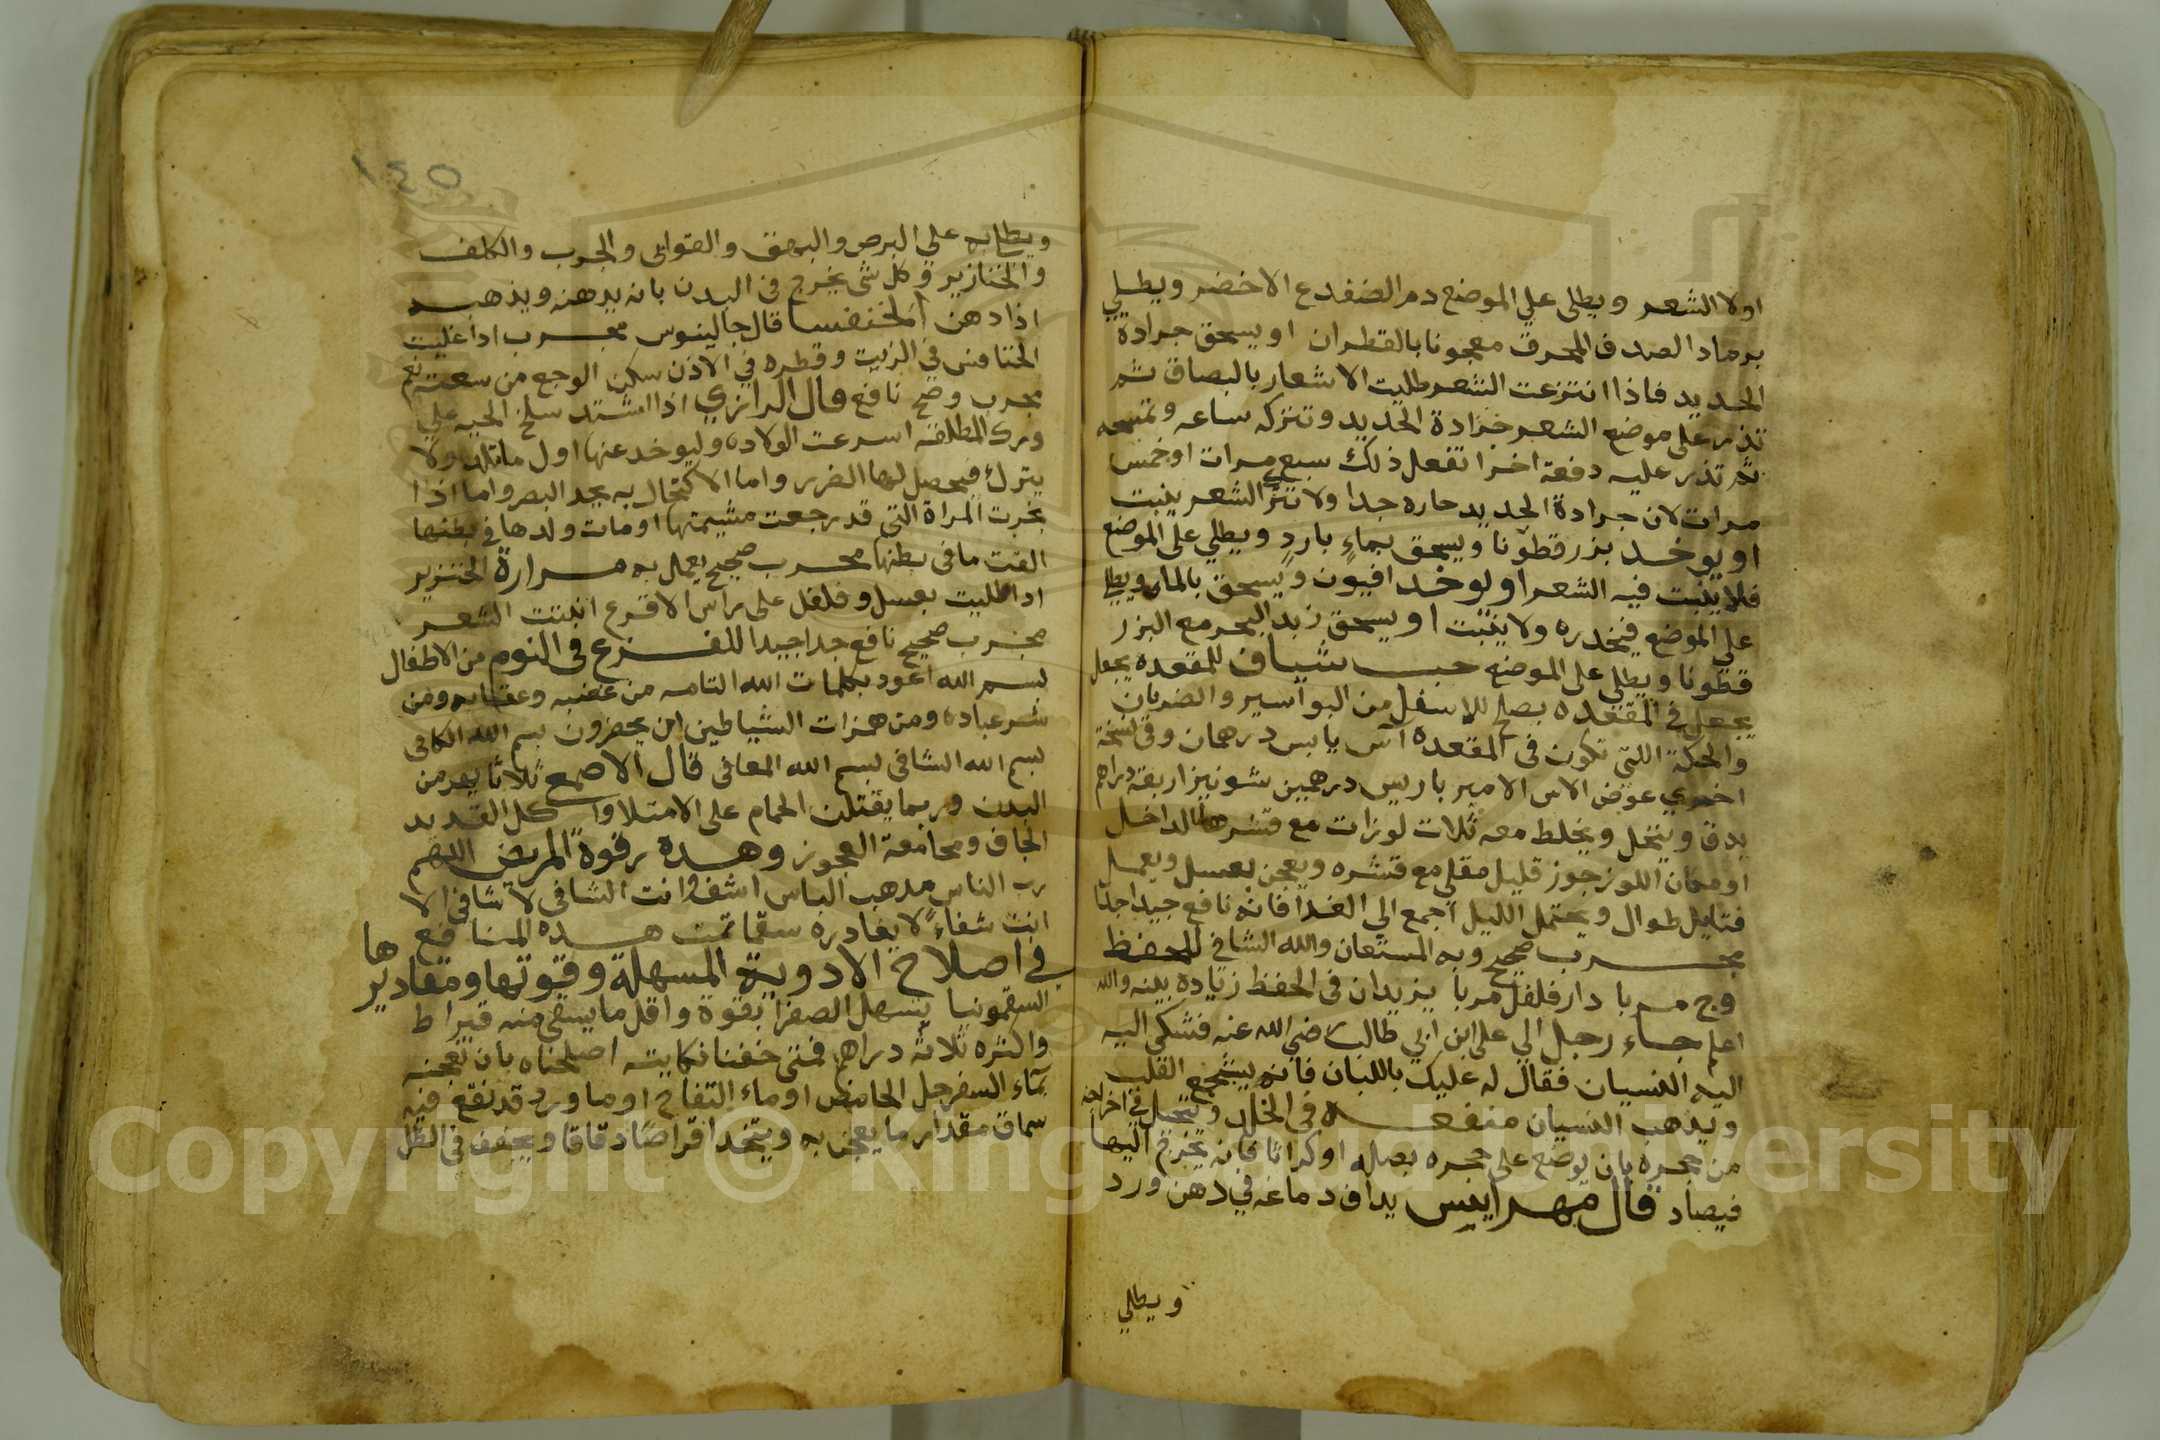 اولا الشعر ويطلى علي الموضع دم الضفدع الاخضر ويطلي
برماد الصدف المحرق معجونا بالقطران او يسحق جرادة
الحديد فاذا انتزعت الشعر طليت الاشعار بالبصاق ثم
تذر على موضع الشعر جرادة الحديد وتتركه ساعه وتمسحه
ثم تذر عليه دفعة اخرا تفعل ذلك سبع مرات او خمس
مرات لان جرادة الحديد حاره جدا ولا تترك الشعر ينبت
او يوخد بزر قطونا ويسحق بماء بارد ويطلي على الموضع
فلا ينبت فيه الشعر او يوخد افيون ويسحق بالماء ويطلى
علي الموضع فيخدره ولا ينبت او يسحق زبد البحر مع البزر
قطونا ويطلى على الموضع حب شياف للمقعده يجعل
يجعل في المقعده يصلح للاسفل من البواسير والضربان
والحكة اللتي تكون في المقعده آس يابس درهمان وفي نسخة
اخري عوض الاس الامير باريس درهمين شونيز اربعة دراهم
يدق وينخل ويخلط معه ثلاث لوزات مع قشرها الداخل
او مكان اللوز جوز قليل مقلي مع قشره ويعجن بعسل ويعمل
فتايل طوال ويحتمل الليل اجمع الي الغدا فانه نافع جيدا جدا
مجرب صحيح وبه المستعان والله الشافي للحفظ
وج مربا دار فلفل مربا يزيدان في الحفظ زيادة بينه والله
اعلم جاء رجل الي على ابن ابي طالب رضي الله عنه فشكى اليه
اليه النسيان فقال له عليك باللبان فانه يشجع القلب
ويذهب النسيان منفعه في الخلد وتتحيل في اخراجه
من جحره بان يوضع على جحره بصله او كراثا فانه يخرج اليها
فيصاد قال مهراريس يداف دماغه في دهن ورد
ويطلي
١٤٥
ويطلابه علي البرص والبهق والقوابي والجرب والكلف
والخنازير وكل شي يخرج في البدن بانه يدهنه ويذهب
اذا دهن الخنفسا قال جالينوس مجرب ادا غليت
الخنافس في الزيت وقطره في الاذن سكن الوجع من ساعته نعم
مجرب وصح نافع قال الرازي اذا اشتد سلخ الحيه علي
ورك المطلقة اسرعت الولاده وليوخد عنها اول ما تلد ولا
يترك فيحصل لها الضرر واما الاكتحال به يجد البصر واما اذا
بخرت المراة التي قد رجعت مشيمتها او مات ولدها في بطنها
القت ما في بطنها مجرب صحيح يعمل به مرارة الخنزير
ادا طليت بعسل وفلفل على راس الاقرع انبتت الشعر
مجرب صحيح نافع جدا جيدا للفزع في النوم من الاطفال
بسم الله اعود بكلمات الله التامه من غضبه وعقابه ومن
شر عباده ومن همزات الشياطين ان يحضرون بسم الله الكافي
بسم الله الشافي بسم الله المعافي قال الاصمع ثلاثا يهرمن
البدن وربما يقتلن الحمام على الامتلا واكل القديد
الجاف ومجامعة العجوز وهده رقوة المريض اللهم
رب الناس مدهب الباس اشف وانت الشافي لا شافي الا
انت شفاء لا يغادره سقما تمت هده المنافع
في اصلاح الادوية المسهلة وقوتها ومقاديرها
السقمونيا يسهل الصفرا بقوة واقل ما يسقى منه قيراط
واكثره ثلاثة دراهم فمتى خفنا نكايته اصلحناه بان نعجنه
بماء السفرجل الحامض او ماء التفاح او ما ورد قد نقع فيه
سماق مقدار ما يعجن به ويتخد اقراصا دقاقا ويجفف في الظل
Copyright © King Saud University